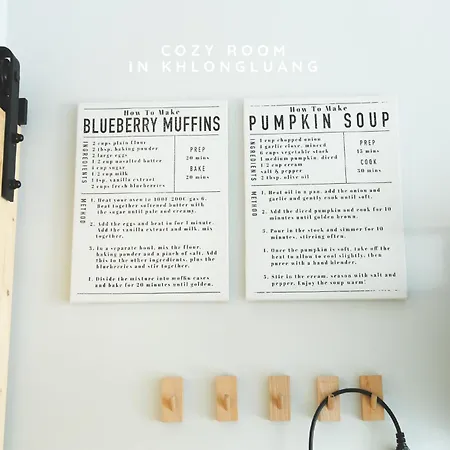 COZY ROOM
IN KHLONGLUANG
How To Make
BLUEBERRY MUFFINS
INGREDIENTS
2 cups plain flour
2 tbsp. baking powder
2 large eggs
1/2 cup unsalted butter
1 cup sugar
1/2 cup milk
1 tsp. vanilla extract
2 cups fresh blueberries
PREP
20 mins
BAKE
20 mins
METHOD
1. Heat your oven to 180C 200C, gas 6.
Beat together softened butter with
the sugar until pale and creamy.
2. Add the eggs and beat in for 1 minute.
Add the vanilla extract and milk, mix
together.
3. In a separate bowl, mix the flour,
baking powder and a pinch of salt. Add
this to the other ingredients, plus the
blueberries and stir together.
4. Divide the mixture into muffin cases
and bake for 20 minutes until golden.
How To Make
PUMPKIN SOUP
INGREDIENTS
1 cup chopped onion
1 garlic clove, minced
6 cups vegetable stock
1 medium pumpkin, diced
1/2 cup cream
salt & pepper
2 tbsp. olive oil
PREP
15 mins
COOK
30 mins
METHOD
1. Heat oil in a pan, add the onion and
garlic and gently cook until soft.
2. Add the diced pumpkin and cook for 10
minutes until golden brown.
3. Pour in the stock and simmer for 10
minutes, stirring often.
4. Once the pumpkin is soft, take off the
heat to allow to cool slightly, then
puree with a hand blender.
5. Stir in the cream, season with salt and
pepper. Enjoy the soup warm!